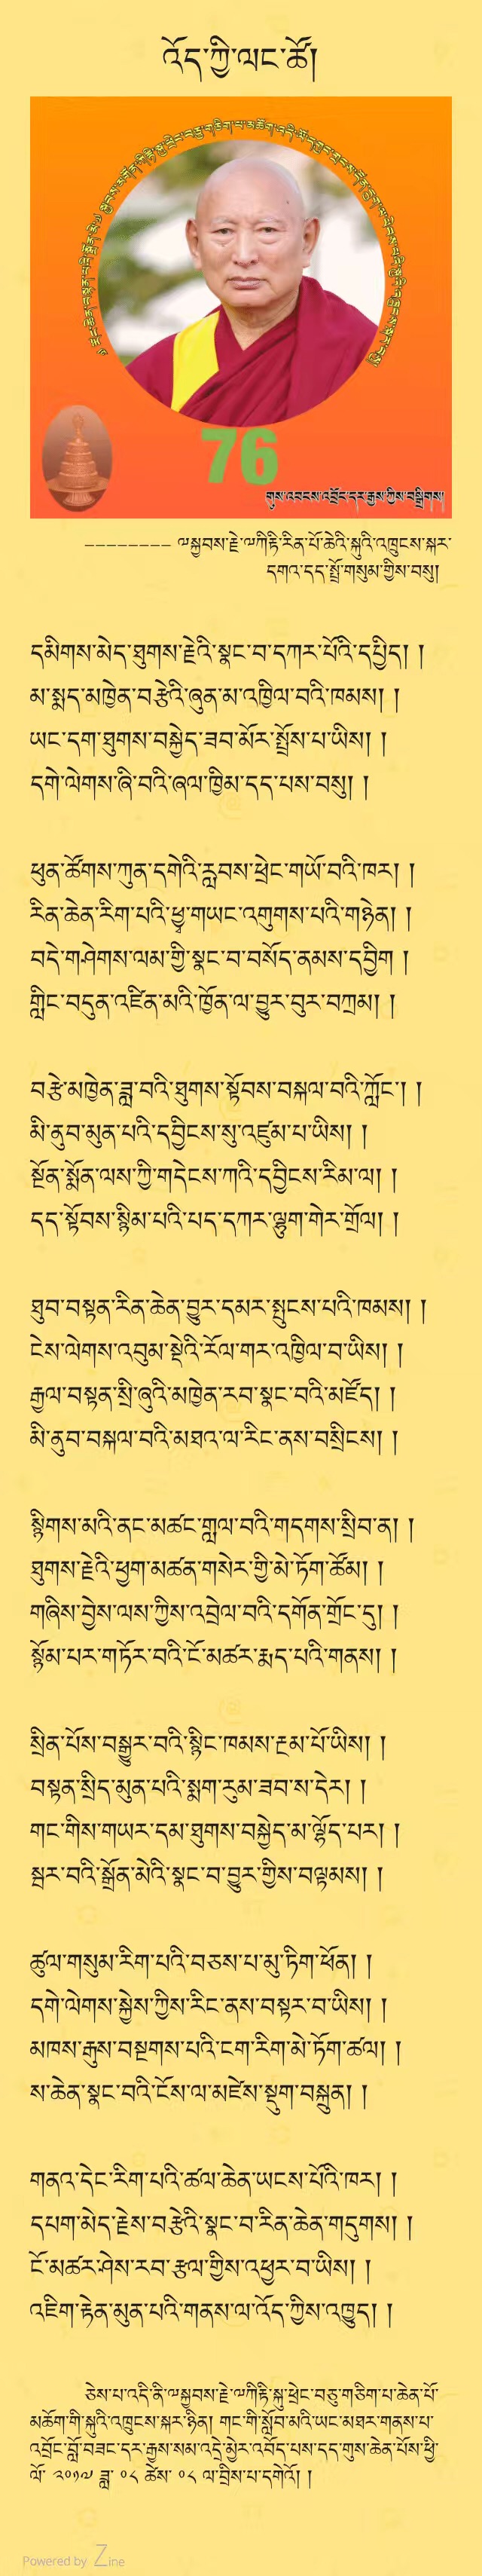 འོད་ཀྱི་ལང་ཚོ།
76
གུས་འབངས་འབྲོང་དར་རྒྱས་ཀྱིས་བསྒྲིགས།
-------- ༧སྐྱབས་རྗེ་༧ཀིརྟི་རིན་པོ་ཆེའི་སྐུའི་འཁྲུངས་སྐར་
དགའ་དད་སྤྲོ་གསུམ་གྱིས་བསུ།
དམིགས་མེད་ཐུགས་རྗེའི་སྣང་བ་དཀར་པོའི་དཔྱིད། །
མ་སྨད་མཁྱེན་བརྩེའི་ཞུན་མ་འཁྱིལ་བའི་ཁམས། །
ཡང་དག་ཐུགས་བསྐྱེད་ཟབ་མོར་སྤྲོས་པ་ཡིས། །
དགེ་ལེགས་ཞི་བའི་ཞལ་ཁྱིམ་དད་པས་བསུ། །
ཕུན་ཚོགས་ཀུན་དགེའི་རླབས་ཕྲེང་གཡོ་བའི་ཁར། །
རིན་ཆེན་རིག་པའི་ཕྱྭ་གཡང་འགུགས་པའི་གཉེན། །
བདེ་གཤེགས་ལམ་གྱི་སྣང་བ་བསོད་ནམས་དབྱིག །
གླིང་བདུན་འཛིན་མའི་ཁྱོན་ལ་བྱུར་བུར་བཀྲམ། །
བརྩེ་མཁྱེན་ཟླ་བའི་ཐུགས་སྟོབས་བསྐལ་བའི་ཀློང་། །
མི་ནུབ་མུན་པའི་དབྱིངས་སུ་འཛུམ་པ་ཡིས། །
སྔོན་སྨོན་ལས་ཀྱི་གདེངས་ཀའི་དབྱིངས་རིམ་ལ། །
དད་སྟོབས་སྙིམ་པའི་པད་དཀར་ལྷུག་གེར་གྲོལ། །
ཐུབ་བསྟན་རིན་ཆེན་བྱུར་དམར་སྤུངས་པའི་ཁམས། །
ངེས་ལེགས་འབུམ་སྡེའི་རོལ་གར་འཁྱིལ་བ་ཡིས། །
རྒྱལ་བསྟན་སྤྱི་ཞུའི་མཁྱེན་རབ་སྣང་བའི་མཛོད། །
མི་ནུབ་བསྐལ་བའི་མཐའ་ལ་རིང་ནས་བསྲིངས། །
སྙིགས་མའི་ནང་མཚང་གླལ་བའི་གདགས་སྲིབ་ན། །
ཐུགས་རྗེའི་ཕྱག་མཚན་གསེར་གྱི་མེ་ཏོག་ཚོམ། །
གཞིས་བྱེས་ལས་ཀྱིས་འབྲེལ་བའི་དགོན་གྲོང་དུ། །
སྙོམ་པར་གཏོར་བའི་ངོ་མཚར་རྨད་པའི་གནས། །
སྲིན་པོས་བསྒྱུར་བའི་སྙིང་ཁམས་རྔམ་པོ་ཡིས། །
བསྟན་སྲིད་མུན་པའི་སྨག་རུམ་ཟབ་ས་དེར། །
གང་གིས་གཡར་དམ་ཐུགས་བསྐྱེད་མ་ལྷོད་པར། །
སྦར་བའི་སྒྲོན་མེའི་སྣང་བ་བྱུར་གྱིས་བལྟམས། །
ཚུལ་གསུམ་རིག་པའི་བཅས་པ་མུ་ཏིག་ཕོན། །
དགེ་ལེགས་སྐྱེས་ཀྱིས་རིང་ནས་བསྟར་བ་ཡིས། །
མཁས་རྒུས་བསྔགས་པའི་ངག་རིག་མེ་ཏོག་ཚལ། །
ས་ཆེན་སྣང་བའི་ངོས་ལ་མཛེས་སྡུག་བསྐྲུན། །
གནའ་དེང་རིག་པའི་ཚལ་ཆེན་ཡངས་པོའི་ཁར། །
དཔག་མེད་རྗེས་བརྩེའི་སྣང་བ་རིན་ཆེན་གདུགས། །
ངོ་མཚར་ཤེས་རབ་རྩལ་གྱིས་འཕྱར་བ་ཡིས། །
འཇིག་རྟེན་མུན་པའི་གནས་ལ་འོད་ཀྱིས་འཁྱུད། །
ཅེས་པ་འདི་ནི་༧སྐྱབས་རྗེ་༧ཀིརྟི་སྐུ་ཕྲེང་བཅུ་གཅིག་པ་ཆེན་པོ་
མཆོག་གི་སྐུའི་འཁྲུངས་སྐར་ཉིན། གང་གི་སློབ་མའི་ཡང་མཐར་གནས་པ་
འབྲོང་བློ་བཟང་དར་རྒྱས་སམ་འདྲེ་མྱེར་འབོད་པས་དད་གུས་ཆེན་པོས་ཕྱི་
ལོ་ ༢༠༡༧ ཟླ་ ༠༨ ཚེས་ ༠༨ ལ་བྲིས་པ་དགེའོ། །
Powered by Zine